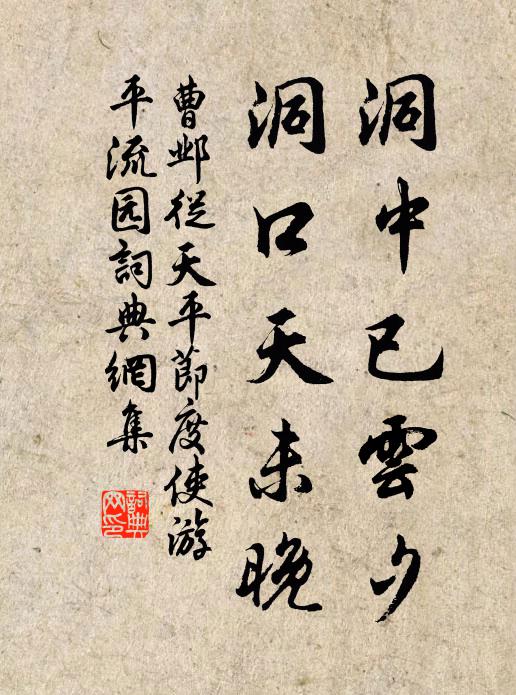 洞中已雲夕
洞口天未晚
曹邺從天平節度使游
平流园詞典網集
詞典网印